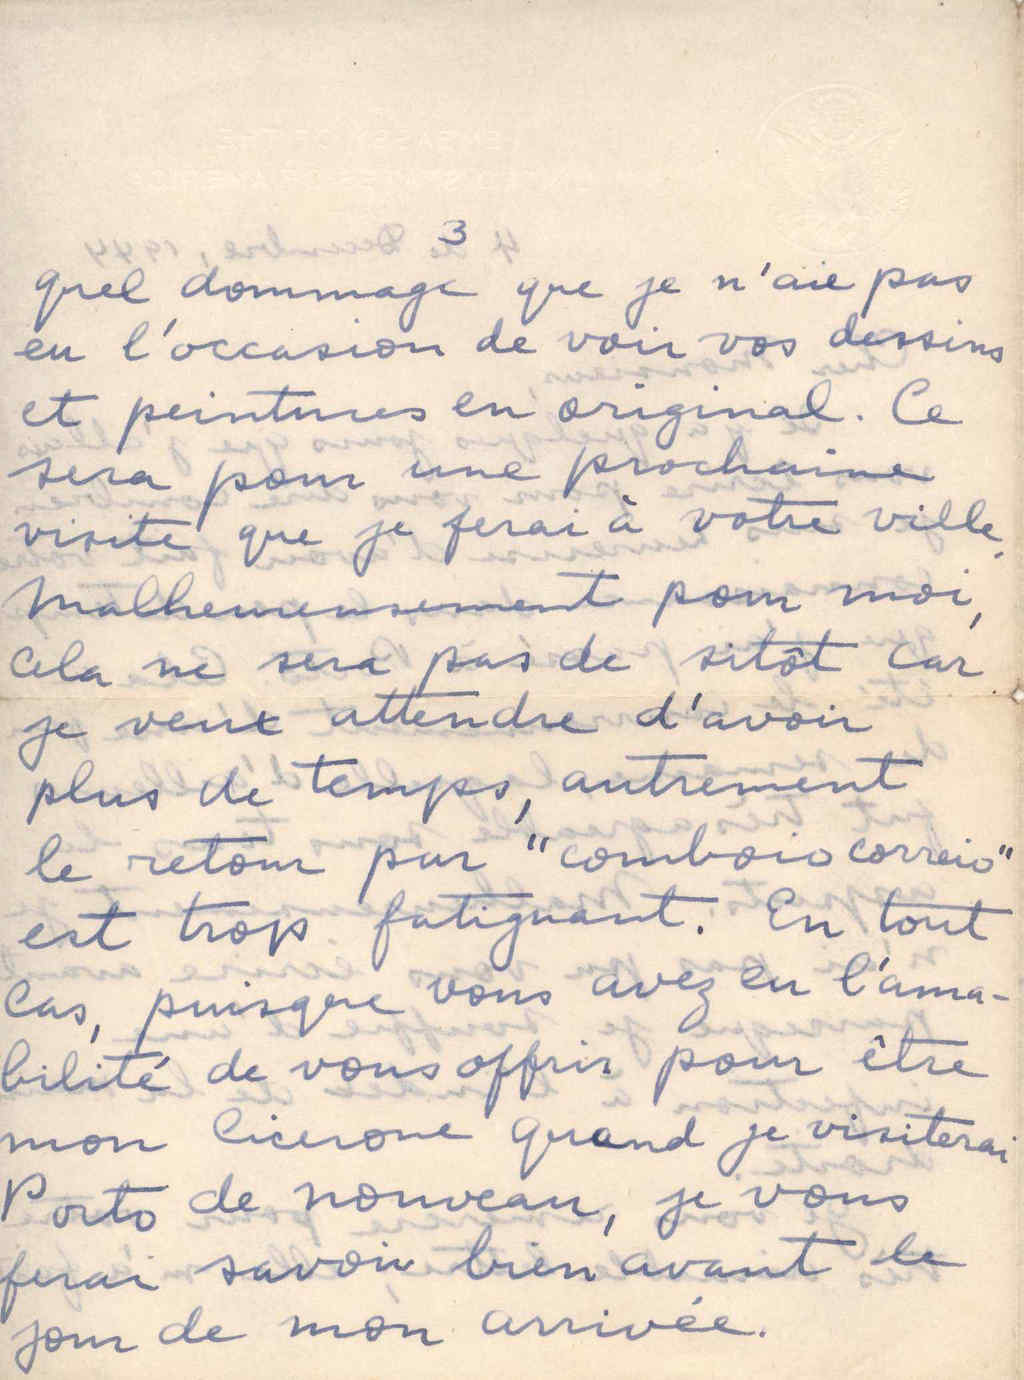 3
quel dommage que je n'aie pas
eu l'occasion de voir vos dessins
et peintures en original. Ce
sera pour une prochaine
visite que je ferai à votre ville.
Malheureusement pour moi,
cela ne sera pas de sitôt car
je veux attendre d'avoir
plus de temps, autrement
le retour par "comboio correio"
est trop fatiguant. En tout
cas, puisque vous avez eu l'ama-
bilité de vous offrir pour être
mon cicerone quand je visiterai
Porto de nouveau, je vous
ferai savoir bien avant le
jour de mon arrivée.